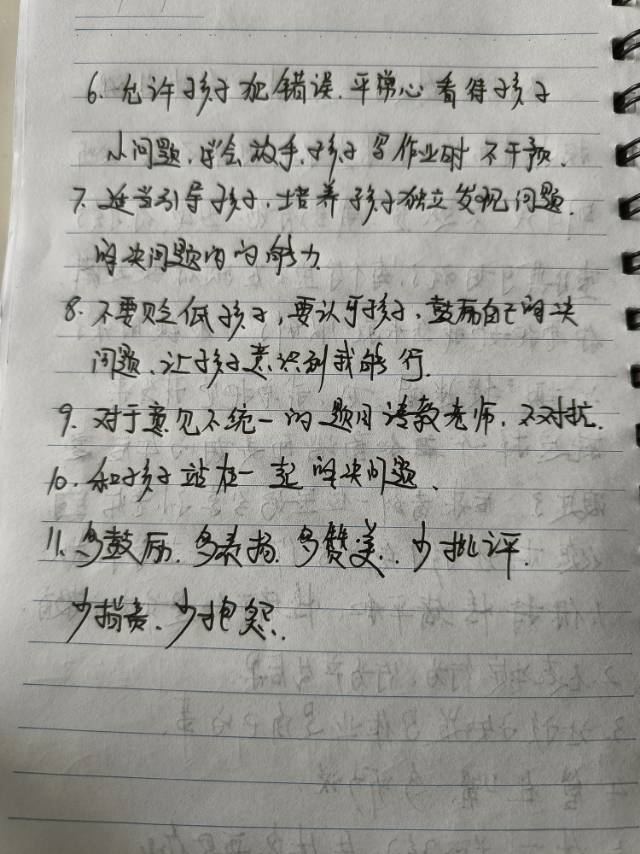 6. 允许孩子犯错误.平常心看待孩子
从问题.学会放手.孩子写作业时不干预.
7. 适当引导孩子.培养孩子独立发现问题.
解决问题的的能力
8. 不要贬低孩子,要认可孩子.鼓励自己解决
问题.让孩子意识到我能行.
9. 对于意见不统一的题目请教老师.不对抗.
10. 和孩子站在一起解决问题.
11. 多鼓励.多表扬.多赞美.少批评.
少指责.少抱怨.